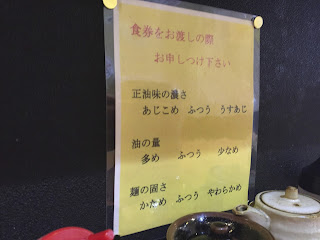 食券をお渡しの際
お申しつけ下さい
正油味の濃さ
あじこめ ふつう うすあじ
油の量
多め ふつう 少なめ
麺の固さ
かため ふつう やわらかめ